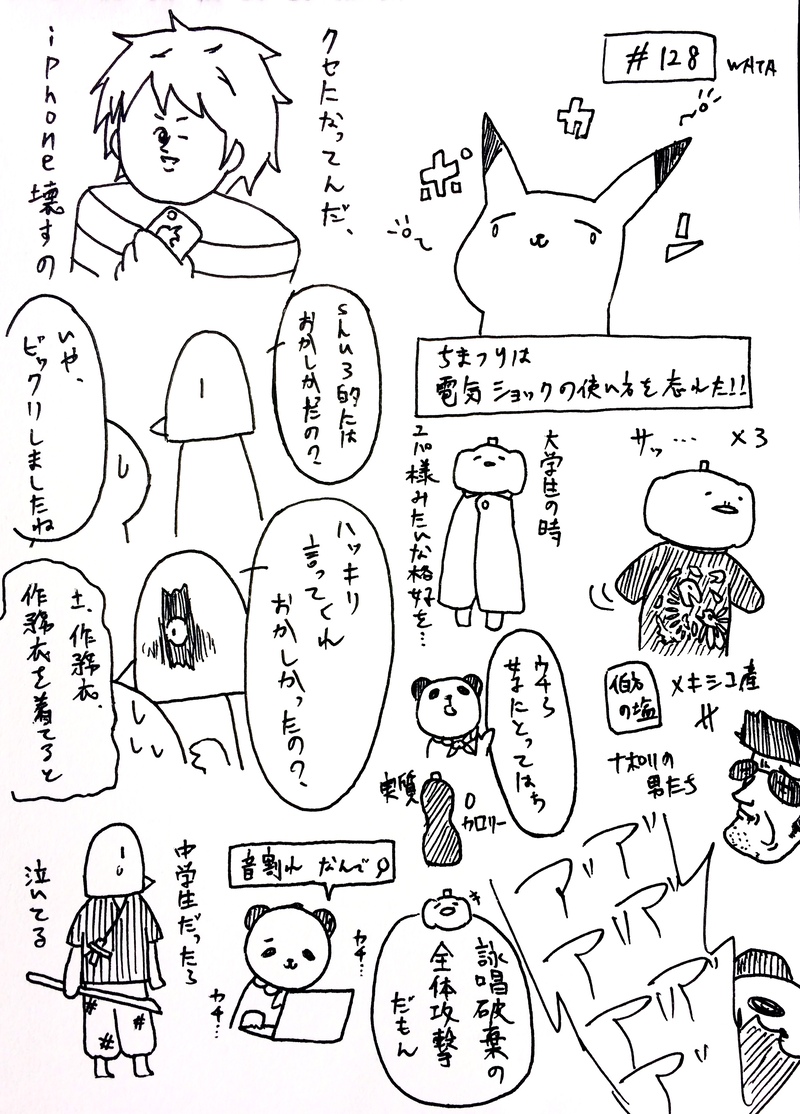 #128 WATA
ポカーン
ちまつりは
電気ショックの使い方を忘れた!!
クセになってんだ、
iPhone壊すの
サッ… ×3
大学生の時
ユパ様みたいな格好を…
おかしかたの?
いや、
ビックリしましたね
ハッキリ
言ってくれ
おかしかったの?
土、作務衣、
作務衣を着てると
伯方
の塩
メキシコ産
ナポリの
男たち
ウチら
にとってはち
実質
0
カロリー
中学生だったら
泣いてる
音割れ なんで
カチ…
カチ…
詠唱破棄の
全体攻撃
だもん
アアア
アアア
アアア